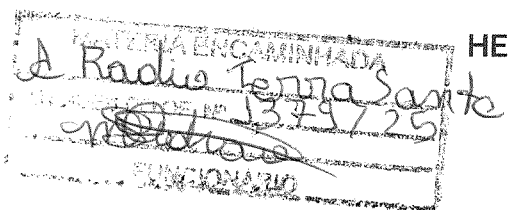 MATERIA ENCAMINHADA
HE
A Radio Terra Santa
Nº 1379/25
FUNCIONARIO